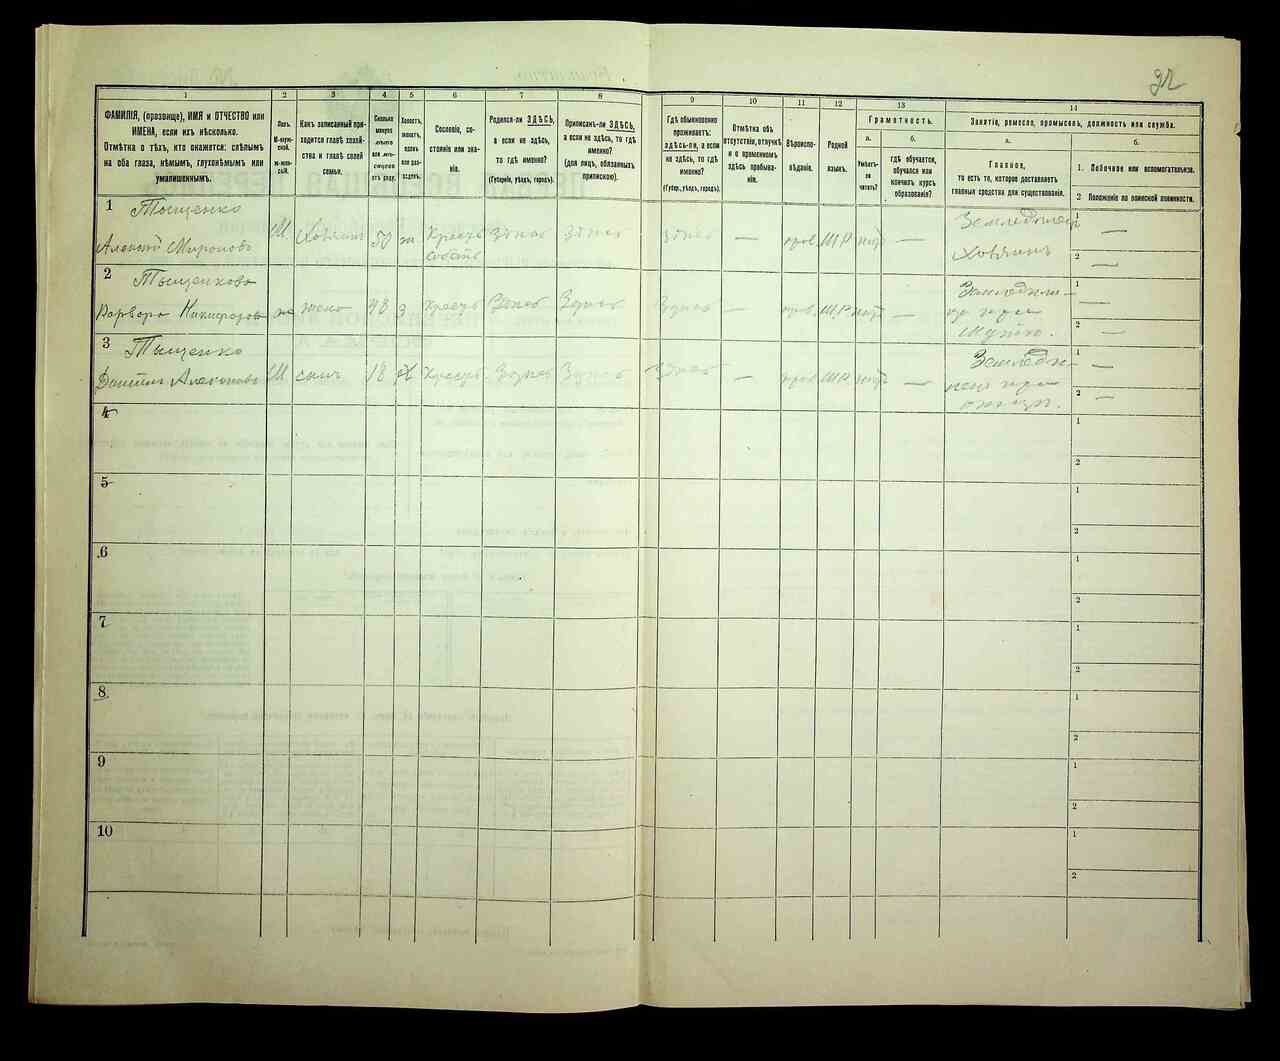 92
1
2
3
4
5
6
7
8
9
10
11
12
13
14
ФАМИЛІЯ, (прозвище), ИМЯ и ОТЧЕСТВО или
ИМЕНА, если ихъ нѣсколько.
Отмѣтка о тѣхъ, кто окажется: слѣпымъ
на оба глаза, нѣмымъ, глухонѣмымъ или
умалишеннымъ.
Полъ.
М-мужской.
Ж-женскій.
Какъ записанный приходится
главѣ хозяйства
и главѣ своей
семьи.
Сколько
минуло
лѣтъ
или мѣсяцевъ
отъ роду.
Холостъ,
женатъ,
вдовъ
или разведенъ.
Сословіе, состояніе
или званіе.
Родился-ли ЗДѢСЬ,
а если не здѣсь,
то гдѣ именно?
(Губернія, уѣздъ, городъ).
Приписанъ-ли ЗДѢСЬ,
а если не здѣсь, то гдѣ
именно?
(для лицъ, обязанныхъ
припискою).
Гдѣ обыкновенно
проживаетъ:
здѣсь-ли, а если
не здѣсь, то гдѣ
именно?
(Губер., уѣздъ, городъ).
Отмѣтка объ
отсутствіи, отлучкѣ
и о временномъ
здѣсь пребываніи.
Вѣроисповѣданіе.
Родной
языкъ.
Грамотность.
а.
Умѣетъ-ли
читать?
б.
гдѣ обучается,
обучался или
кончилъ курсъ
образованія?
Занятіе, ремесло, промыселъ, должность или служба.
а.
Главное,
то есть то, которое доставляетъ
главныя средства для существованія.
б.
1. Побочное или вспомогательное.
2 Положеніе по воинской повинности.
1 Тыщенко
Алексѣй Мироновъ М Хозяинъ 50 ж. Крест. собств. Здѣсь Здѣсь Здѣсь — прав. М.Р. нѣтъ — Хозяинъ
1 —
2 —
2 Тыщенкова
Варвара Никифорова ж жена 48 з Крест. Здѣсь Здѣсь Здѣсь — прав. М.Р. нѣтъ — при мужѣ.
1 —
2 —
3 Тыщенко
Даніилъ Алексѣевъ М сынъ 18 х Крест. Здѣсь Здѣсь Здѣсь — прав. М.Р. нѣтъ — при отцѣ.
1 —
2 —
4
1
2
5
1
2
6
1
2
7
1
2
8
1
2
9
1
2
10
1
2